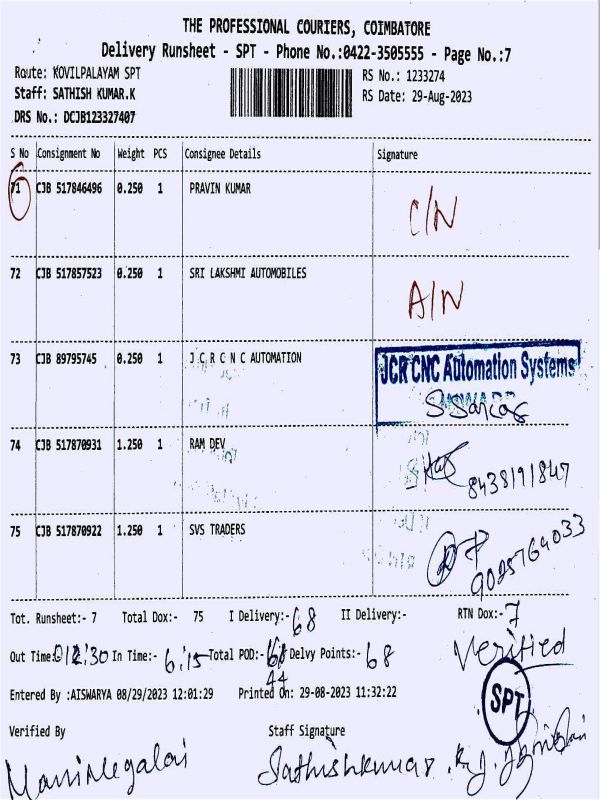 THE PROFESSIONAL COURIERS, COIMBATORE
Delivery Runsheet - SPT - Phone No.:0422-3505555 - Page No.:7
Route: KOVILPALAYAM SPT RS No.: 1233274
Staff: SATHISH KUMAR.K RS Date: 29-Aug-2023
DRS No.: DCJB123327407
S No Consignment No Weight PCS Consignee Details Signature
71 CJB 517846496 0.250 1 PRAVIN KUMAR C/N
72 CJB 517857523 0.250 1 SRI LAKSHMI AUTOMOBILES A/N
73 CJB 89795745 0.250 1 J C R C N C AUTOMATION JCR CNC Automation Systems
74 CJB 517870931 1.250 1 RAM DEV 8438191847
75 CJB 517870922 1.250 1 SVS TRADERS 9025764033
Tot. Runsheet:- 7 Total Dox:- 75 I Delivery:- 68 II Delivery:- RTN Dox:- 7
Out Time: 12:30 In Time:- 6:15 Total POD:- 68 Delvy Points:- 68
44 Verified
Entered By :AISWARYA 08/29/2023 12:01:29 Printed On: 29-08-2023 11:32:22
SPT
Verified By Staff Signature
Manimegalai Sathishkumar. K